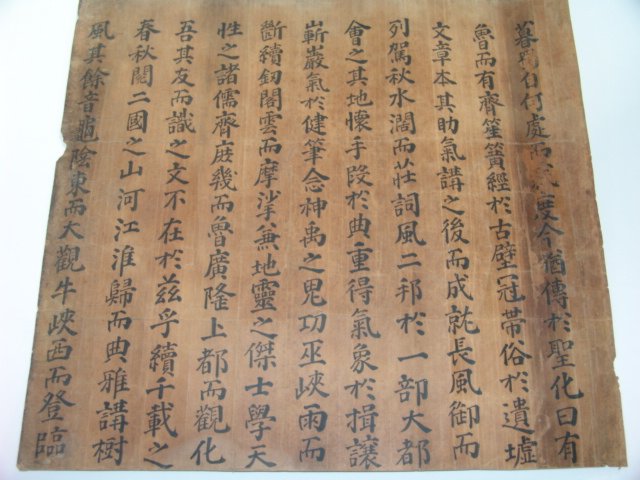 處而今猶傳於聖化曰有
魯而有齊笙簧經於古壁冠帶俗於遺墟
文章本其助氣講之後而成就長風御而
列駕秋水濶而莊詞風二邦於一部大都
會之其地懷手段於典重得氣象於揖讓
嶄巖氣於健筆念神禹之鬼功巫峽雨而
斷續釼閣雲而摩挲兼地靈之傑士學天
性之諸儒齊庭幾而魯廣隆上都而觀化
吾其友而識之文不在於兹乎續千載之
春秋閱二國之山河江淮歸而典雅講樹
風其餘音龜陰東而大觀牛峽西而登臨